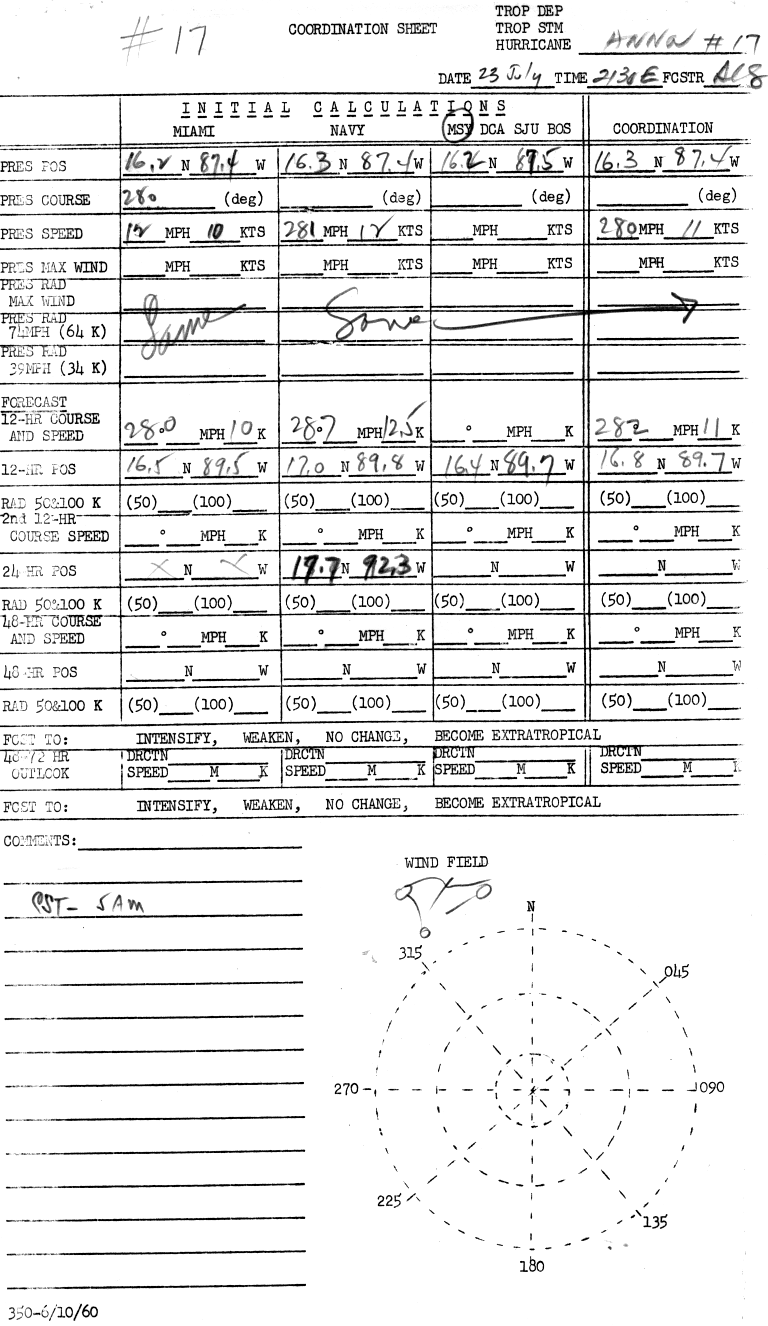 # 17
COORDINATION SHEET
TROP DEP
TROP STM
HURRICANE ANNA # 17
DATE 23 July TIME 2130E FCSTR
INITIAL CALCULATIONS
MIAMI NAVY MSY DCA SJU BOS COORDINATION
PRES POS 16.2 N 87.4 W 16.3 N 87.4 W 16.2 N 87.5 W 16.3 N 87.4 W
PRES COURSE 280 (deg) (deg) (deg) (deg)
PRES SPEED 12 MPH 10 KTS 281 MPH 12 KTS MPH KTS 280 MPH 11 KTS
PRES MAX WIND MPH KTS MPH KTS MPH KTS MPH KTS
PRES RAD
MAX WIND
PRES RAD
74MPH (64 K) Same Same
PRES RAD
39MPH (34 K)
FORECAST
12-HR COURSE
AND SPEED 280 MPH 10 K 287 MPH 12.5 K ° MPH K 282 MPH 11 K
12-HR POS 16.5 N 89.5 W 17.0 N 89.8 W 16.4 N 89.7 W 16.8 N 89.7 W
RAD 50&100 K (50) (100) (50) (100) (50) (100) (50) (100)
2nd 12-HR
COURSE SPEED ° MPH K ° MPH K ° MPH K ° MPH K
24 HR POS X N X W 17.7 N 92.3 W N W N W
RAD 50&100 K (50) (100) (50) (100) (50) (100) (50) (100)
48-HR COURSE
AND SPEED ° MPH K ° MPH K ° MPH K ° MPH K
48-HR POS N W N W N W N W
RAD 50&100 K (50) (100) (50) (100) (50) (100) (50) (100)
FCST TO: INTENSIFY, WEAKEN, NO CHANGE, BECOME EXTRATROPICAL
48-72 HR DRCTN DRCTN DRCTN DRCTN
OUTLOOK SPEED M K SPEED M K SPEED M K SPEED M K
FCST TO: INTENSIFY, WEAKEN, NO CHANGE, BECOME EXTRATROPICAL
COMMENTS:
WIND FIELD
PST- 5AM
N
315
045
270
090
225
135
180
350-6/10/60